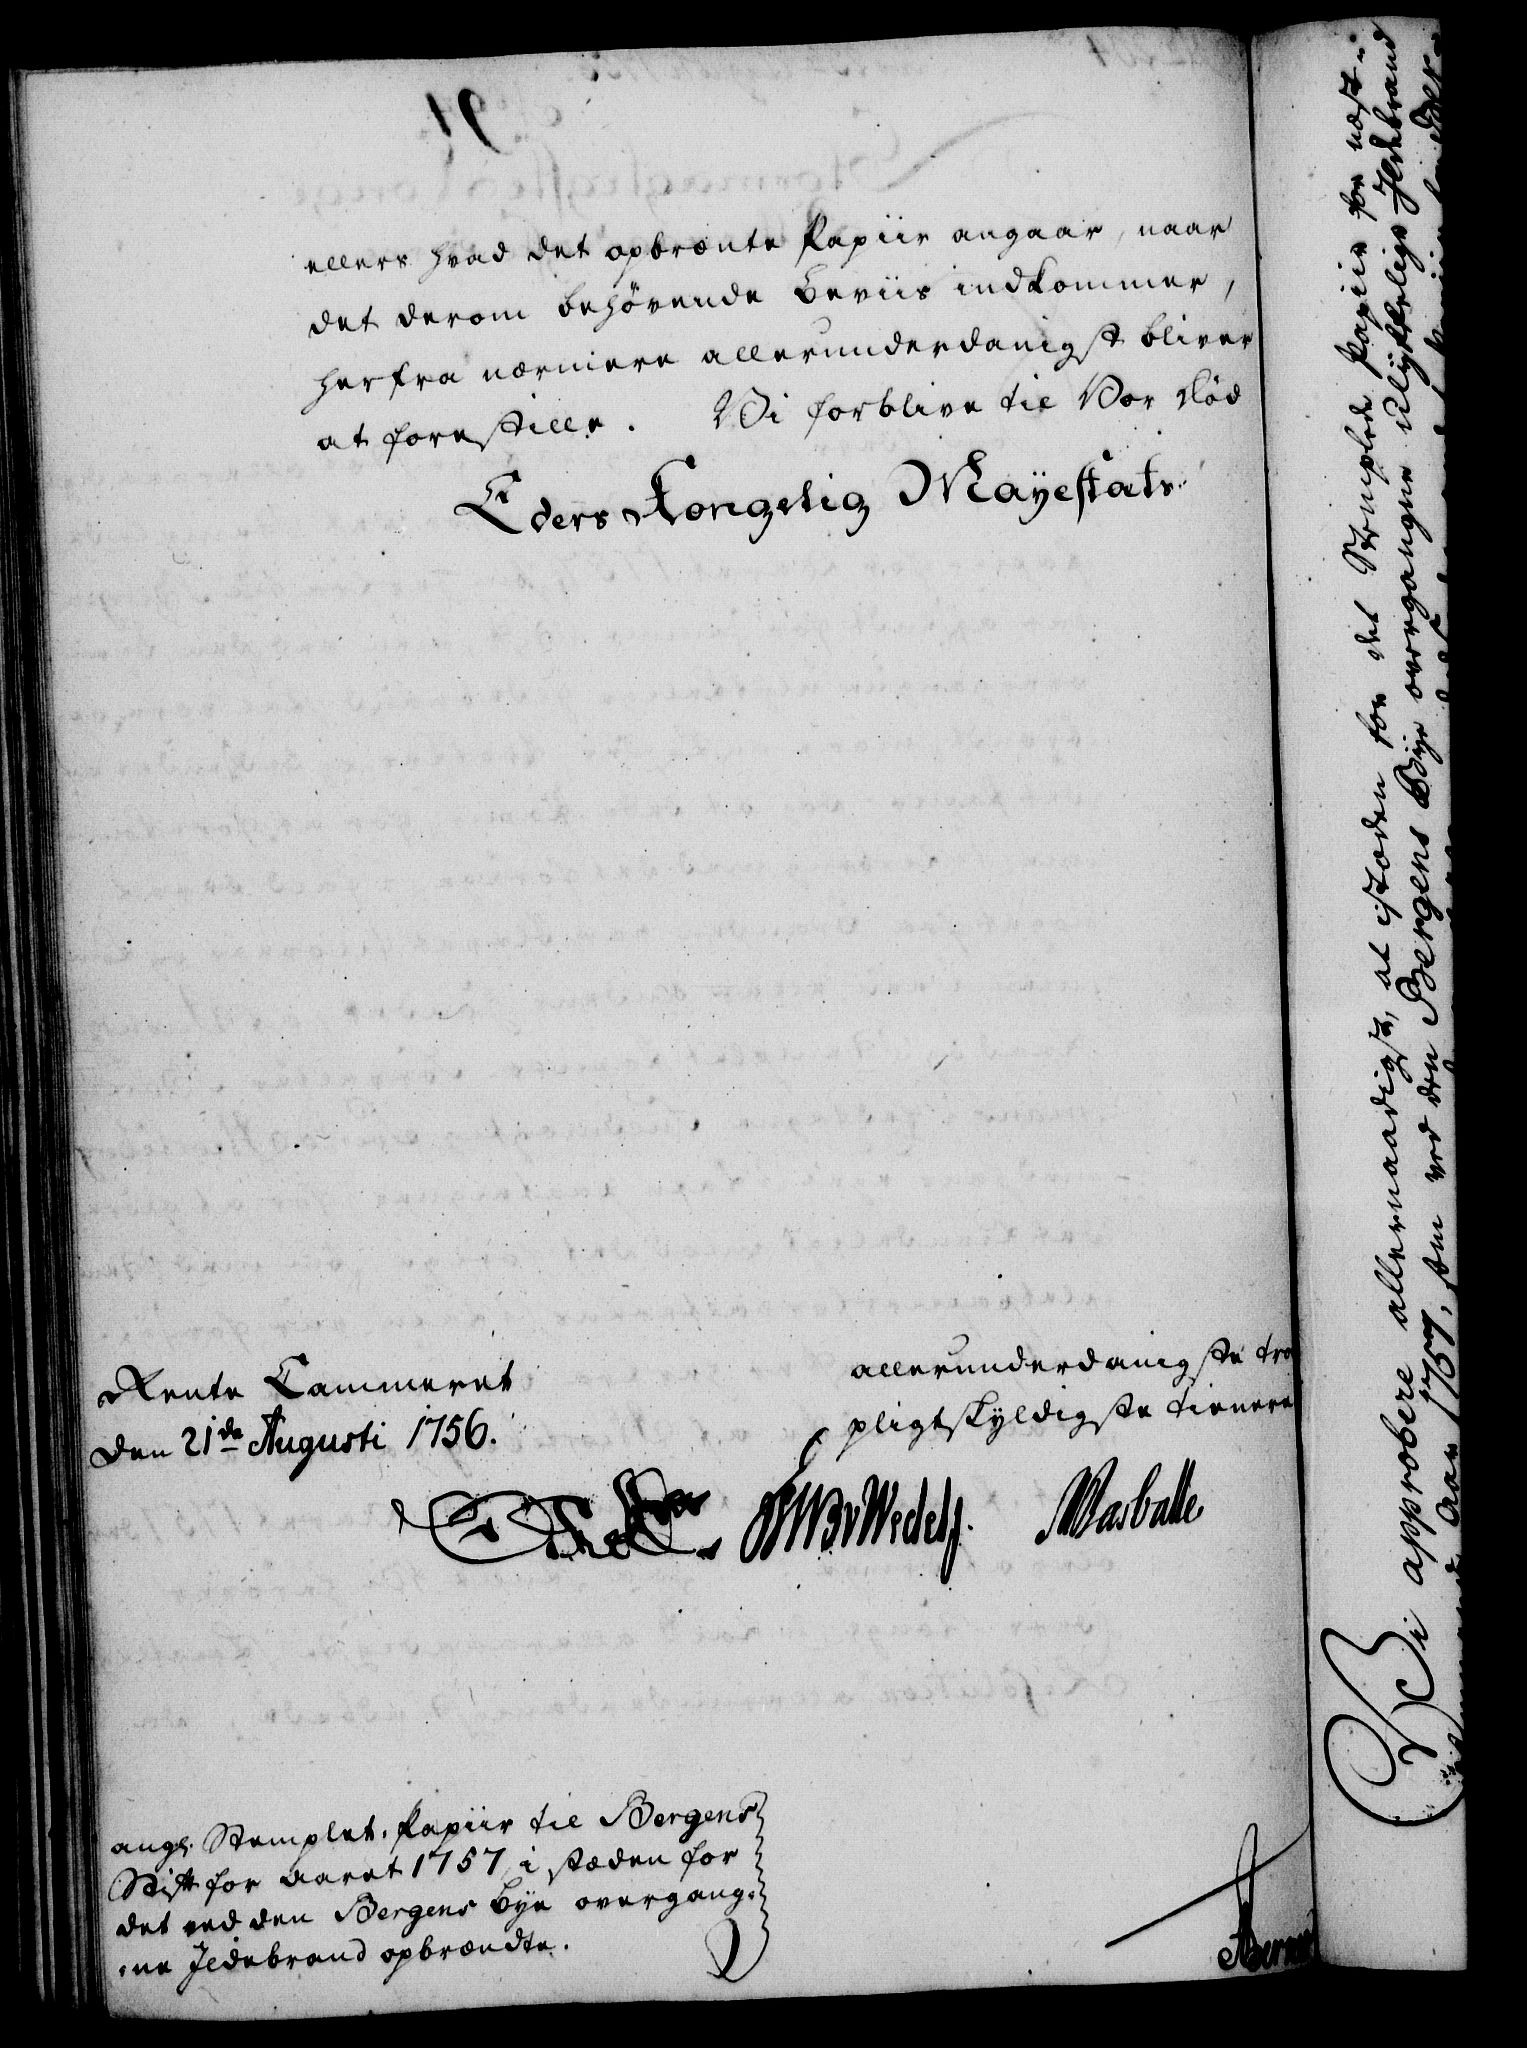 ellers hvad det opbrænte Papiir angaar, naar
det derom behøvende Beviis indkommer,
herfra nærmere allerunderdanigst bliver
at forestille. Vi forblive til Vor Død
Eders Kongelig Mayestæts
Rente Cammeret
den 21de Augusti 1756.
allerunderdanigste tro
pligtskyldigste tienere
angl. Stemplet Papiir til Bergens
Stift for Aaret 1757, i stæden for
det ved den Bergens Bye overgang-
-ne Ildebrand opbrændte.
Vi approbere allernaadigst, at istæden for det Stemplede Papiir for næst-
Aar 1757, som ved den Bergens Bye overgangne ulykkelige Ildebrand